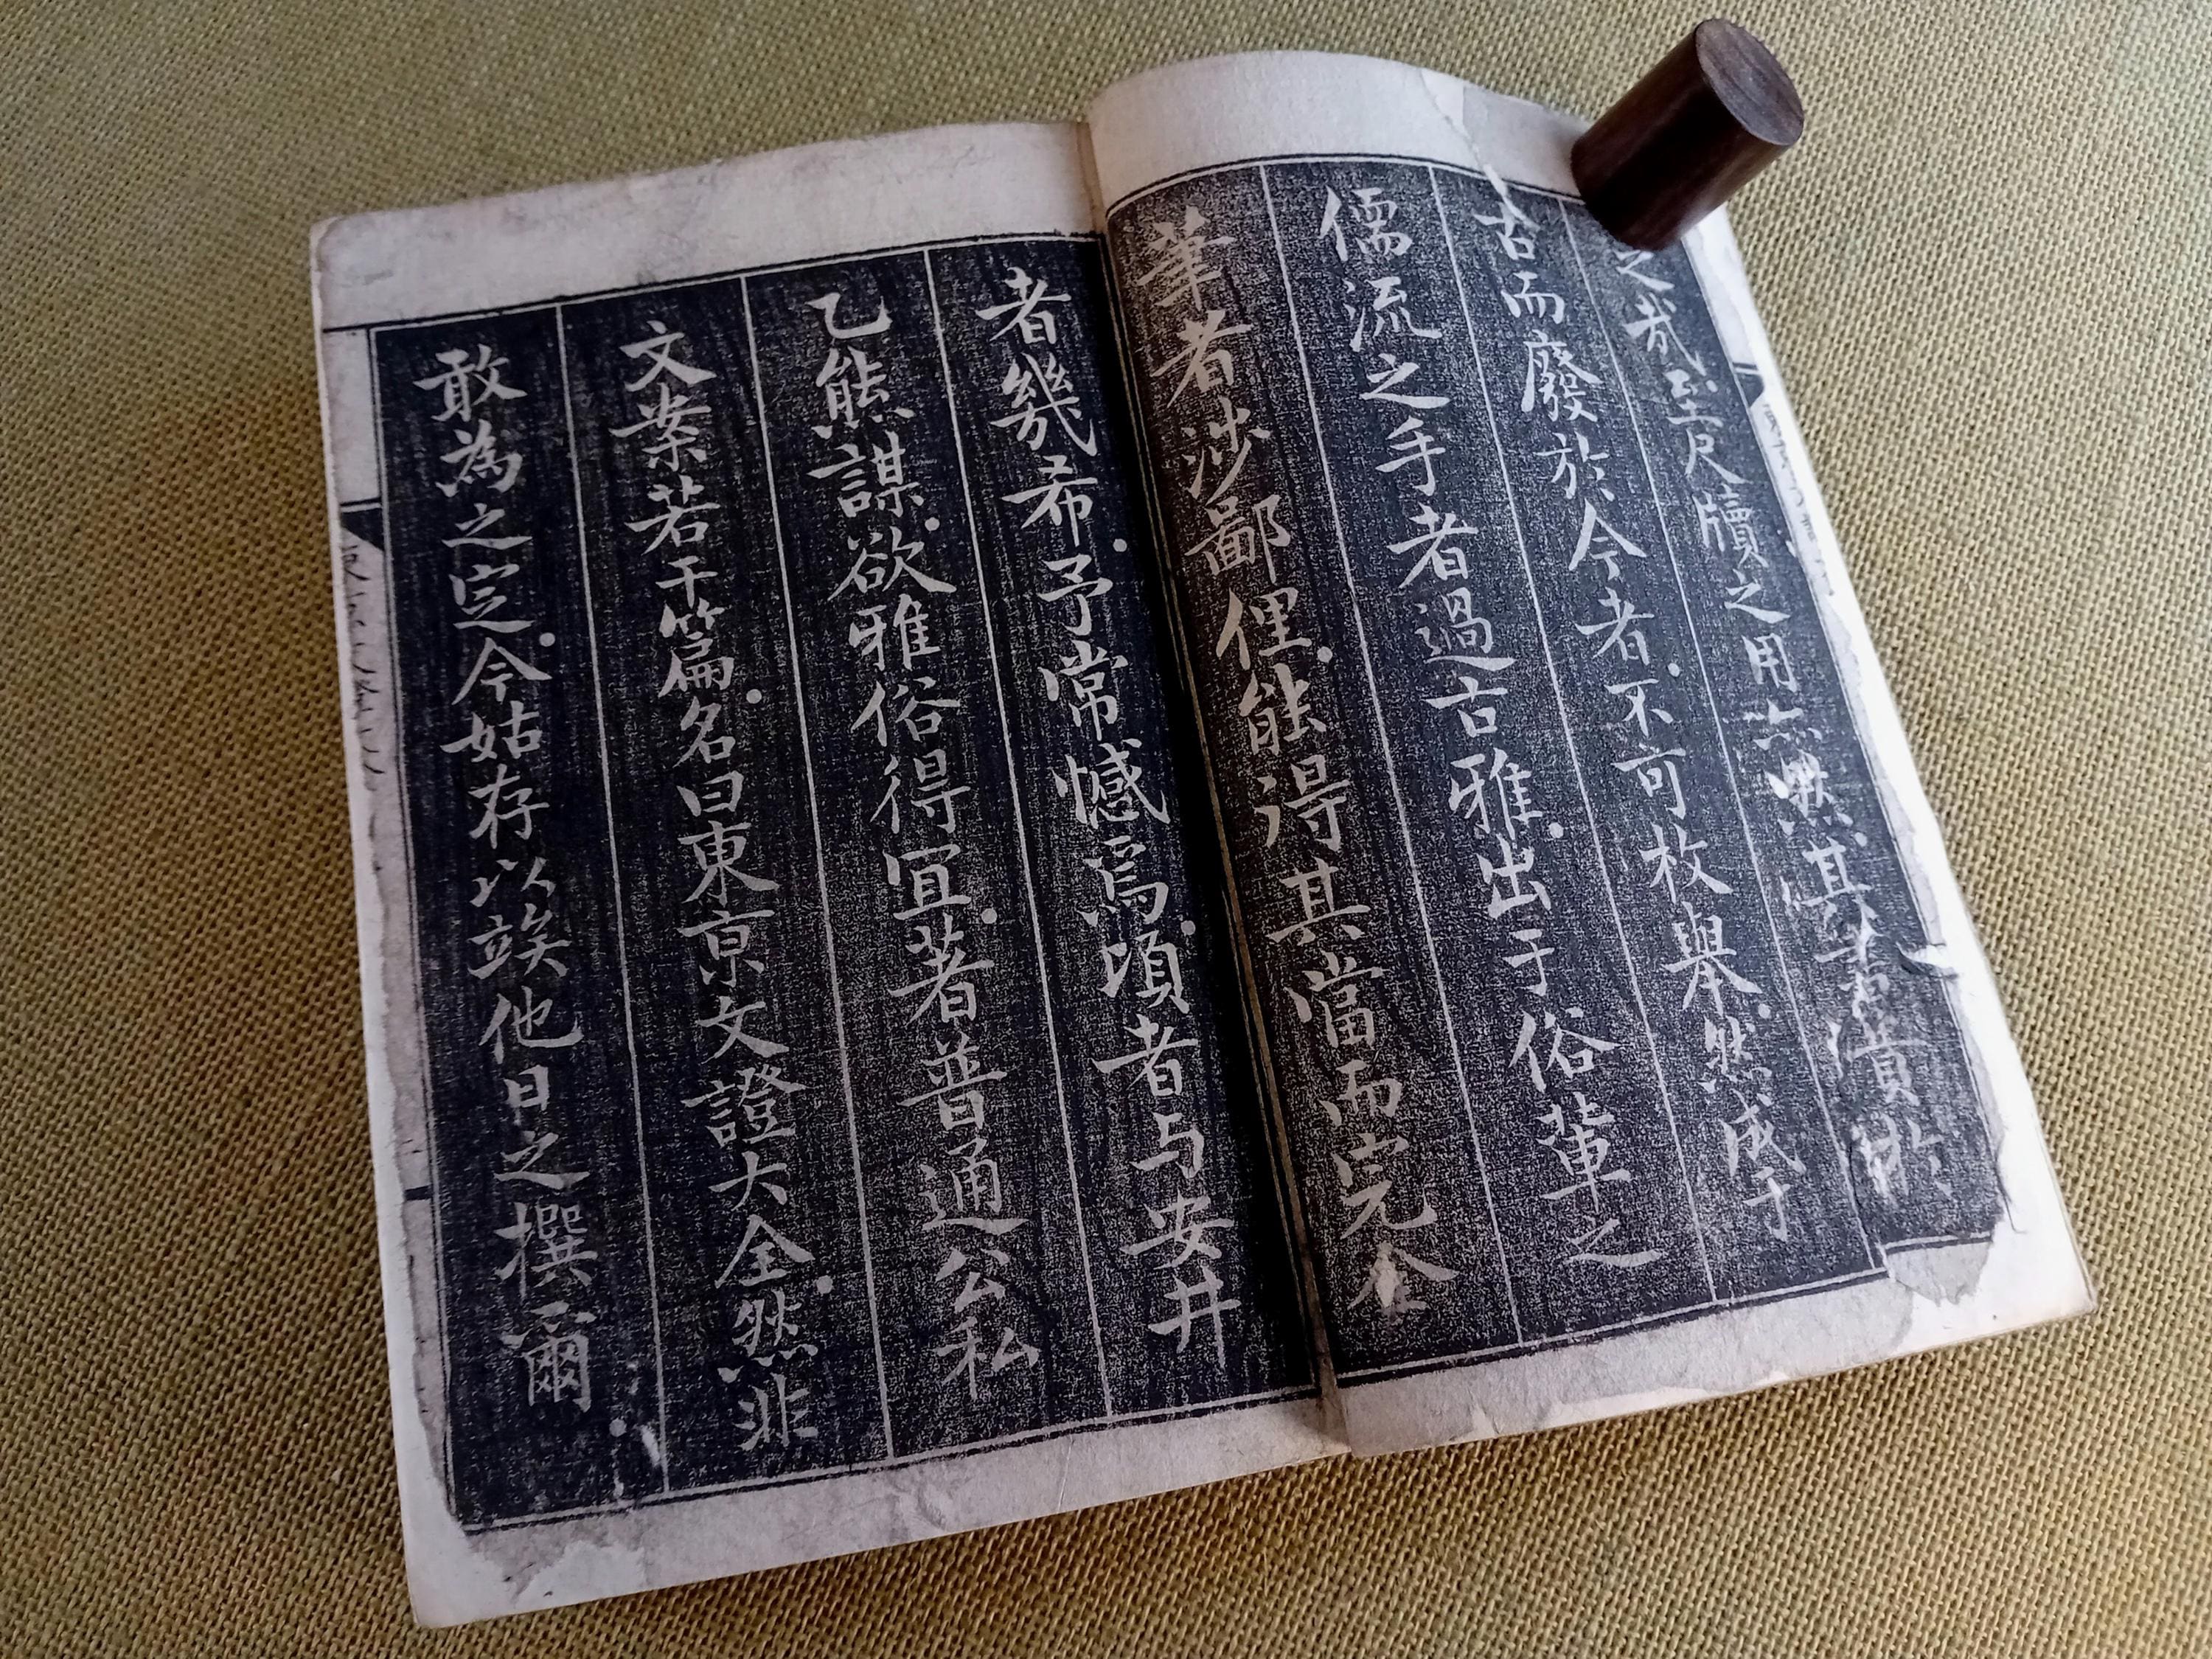 之哉至尺牘之用亦然其著實於
古而廢於今者不可枚舉然成于
儒流之手者過古雅出于俗輩之
筆者涉鄙俚能得其當而完全
者幾希予常憾焉頃者与安井
乙熊謀欲雅俗得宜著普通公私
文案若干篇名曰東京文證大全然非
敢為之定今姑存以竢他日之撰爾